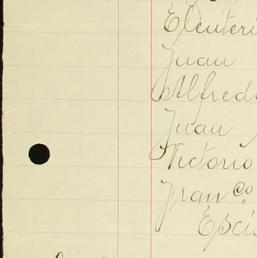 Eleuteri
Juan
Alfredo
Juan
Victorio
Fran co